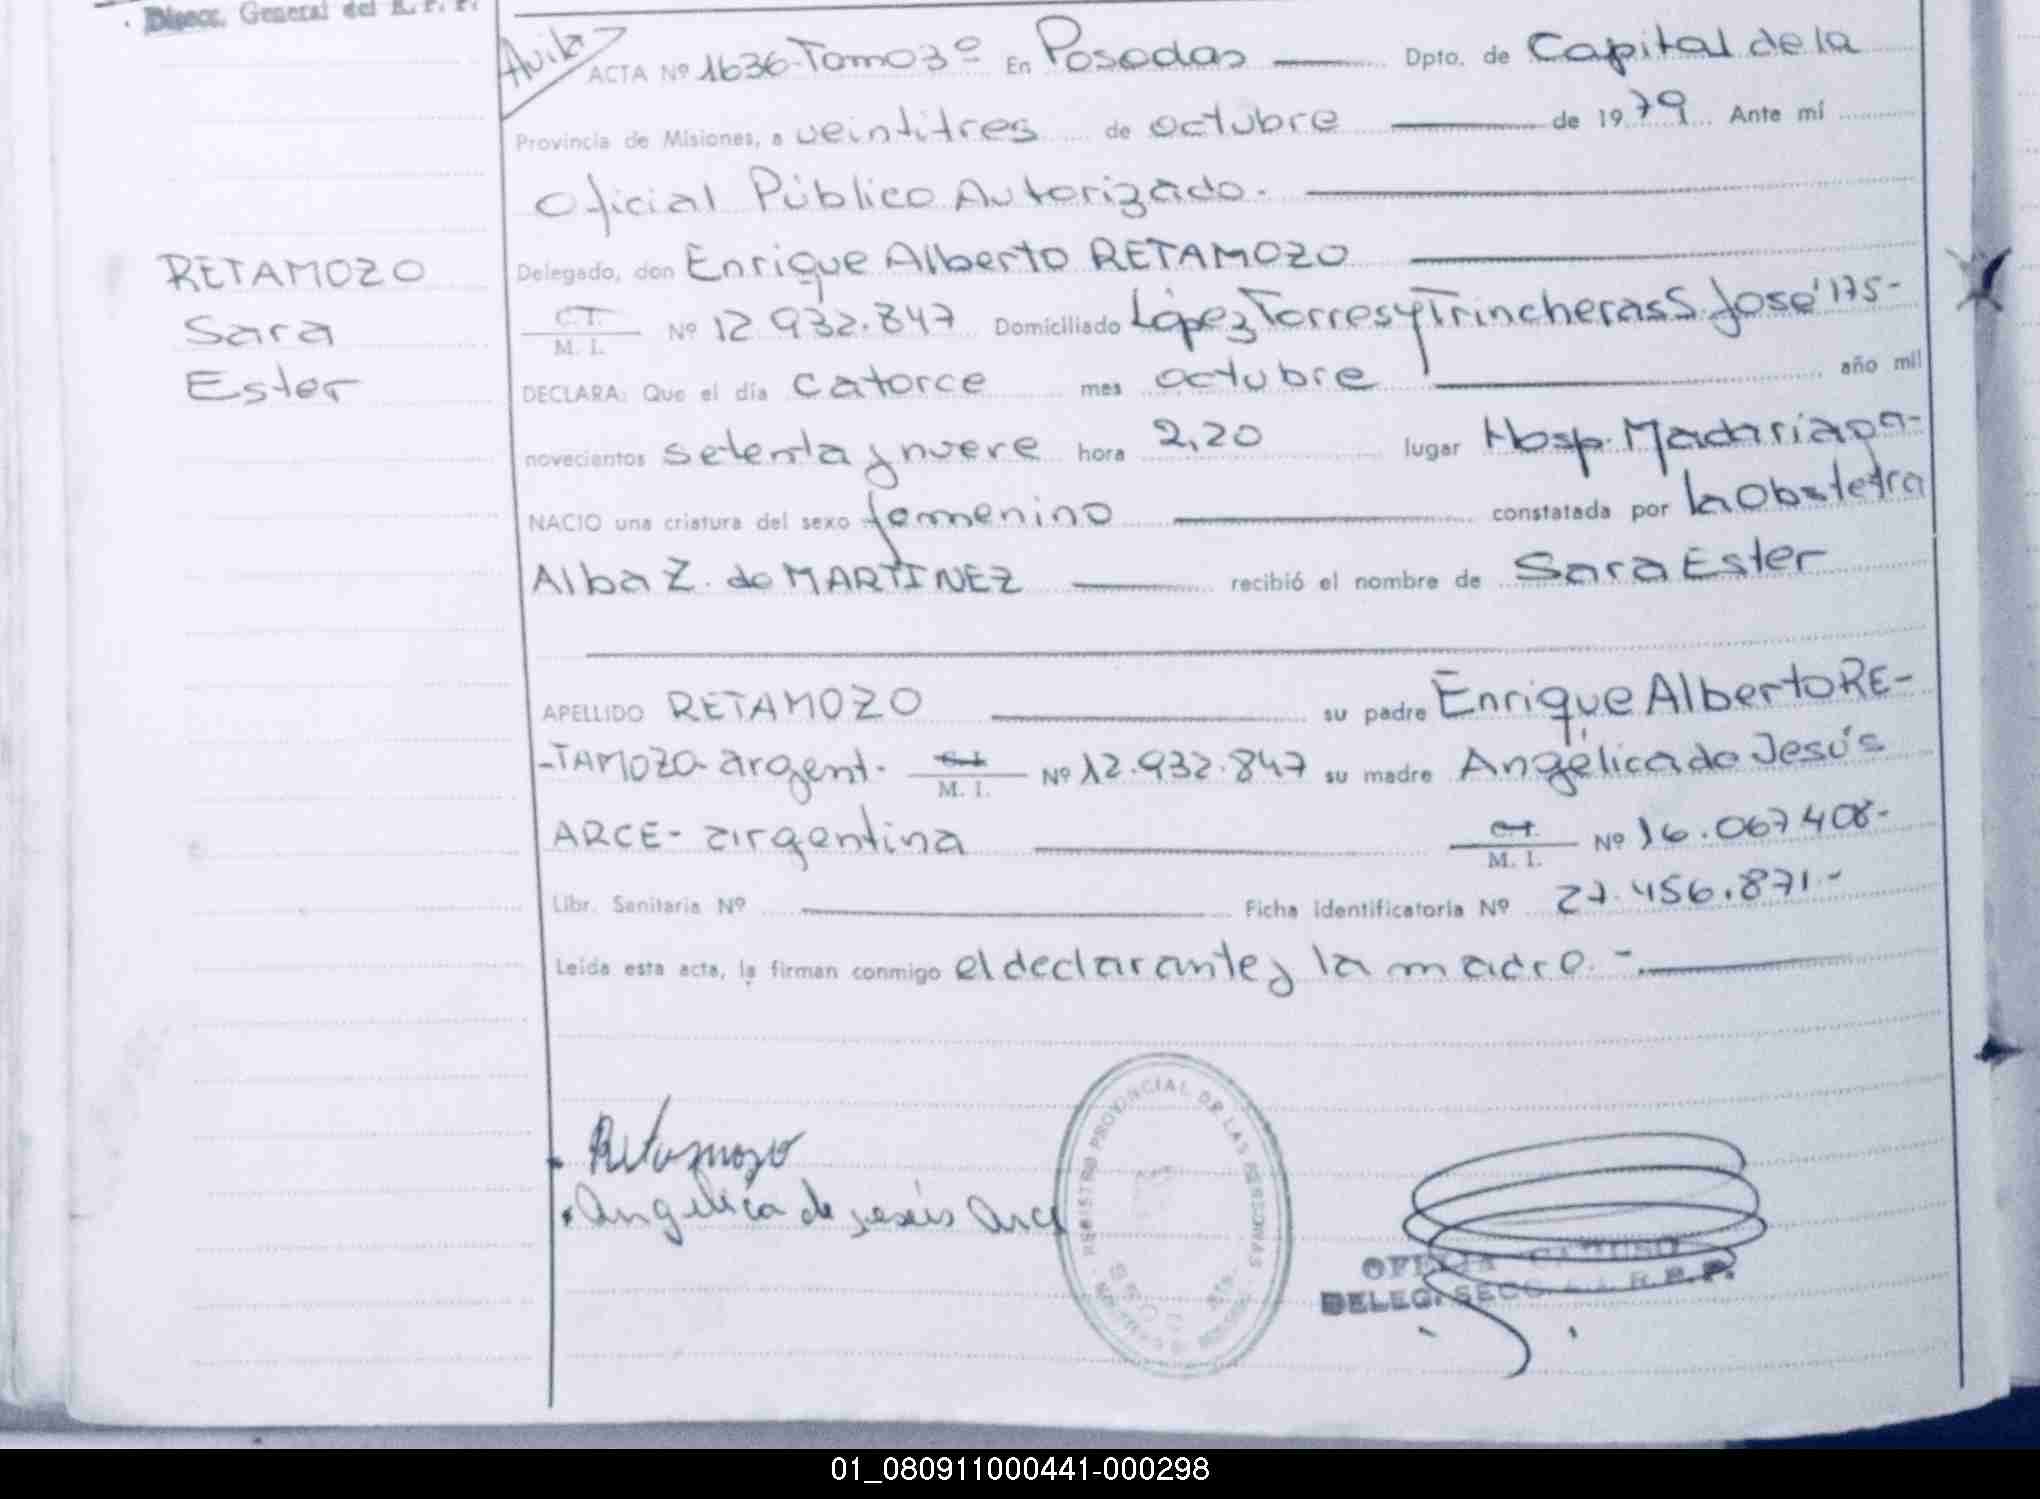 Direcc. General del R. P. P.
Avila
ACTA Nº 1636-Tomo 3º En Posadas Dpto. de Capital de la
Provincia de Misiones, a veintitres de octubre de 1979 Ante mí
Oficial Público Autorizado.-
Delegado, don Enrique Alberto RETAMOZO
RETAMOZO
Sara
Ester
C.I.
M. I. Nº 12.932.847 Domiciliado López Torres y Trincheras S. José 175-
DECLARA: Que el día catorce mes octubre año mil
novecientos setenta y nueve hora 2,20 lugar Hosp. Madariaga-
NACIO una criatura del sexo femenino constatada por la Obstetra
Alba Z. de MARTINEZ recibió el nombre de Sara Ester
APELLIDO RETAMOZO su padre Enrique Alberto RE-
-TAMOZO- argent. M. I. Nº 12.932.847 su madre Angélica de Jesús
ARCE- argentina M. I. Nº 16.067.408-
Libr. Sanitaria Nº Ficha Identificatoria Nº 27.456.871.-
Leída esta acta, la firman conmigo el declarante y la madre.-
Retamozo
Angelica de jesús Arce
REGISTRO PROVINCIAL DE LAS PERSONAS
OFELIA CARUSO
DELEG. SECC. R. P. P.
01_080911000441-000298